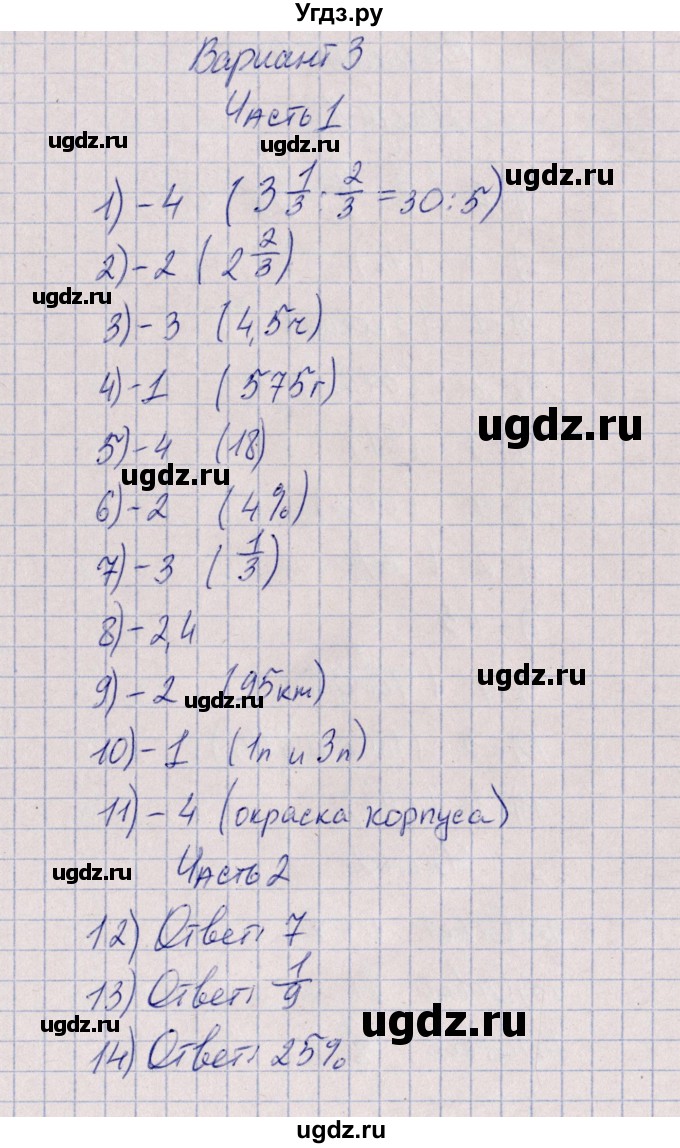 Угдз.ру
Вариант 3
Часть 1
ugdz.ru ugdz.ru
1) - 4 (3 1/3 : 2/3 = 30 : 5) ugdz.ru
2) - 2 (2 2/3)
ugdz.ru
3) - 3 (4,5ч)
4) - 1 (575г)
ugdz.ru
5) - 4 (18)
ugdz.ru
6) - 2 (4%)
7) - 3 (1/3)
ugdz.ru
8) - 2,4
9) - 2 (95км) ugdz.ru
ugdz.ru
10) - 1 (1п и 3п)
11) - 4 (окраска корпуса)
Часть 2
ugdz.ru ugdz.ru
12) Ответ: 7
13) Ответ: 1/9
ugdz.ru ugdz.ru
14) Ответ: 25%
ugdz.ru